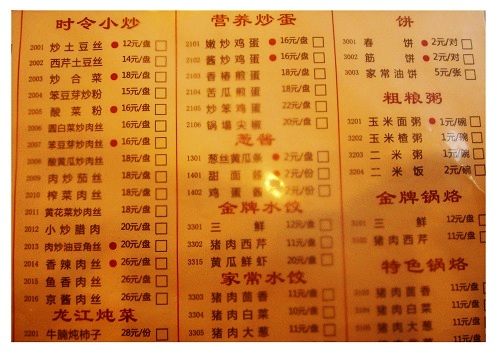 时令小炒
2001 炒土豆丝 12元/盘
2002 西芹土豆丝 14元/盘
2003 炒合菜 18元/盘
2004 笨豆芽炒粉 15元/盘
2005 酸菜粉 16元/盘
2006 圆白菜炒肉丝 16元/盘
2007 笨豆芽炒肉丝 16元/盘
2008 酸黄瓜炒肉丝 18元/盘
2009 肉炒茄丝 18元/盘
2010 榨菜肉丝 18元/盘
2011 黄花菜炒肉丝 18元/盘
2012 小炒腊肉 20元/盘
2013 肉炒油豆角丝 20元/盘
2014 香辣肉丝 26元/盘
2015 鱼香肉丝 26元/盘
2016 京酱肉丝 26元/盘
龙江炖菜
3201 牛腩炖柿子 28元/份
营养炒蛋
2101 嫩炒鸡蛋 16元/盘
2102 酱炒鸡蛋 16元/盘
2103 香椿煎蛋 18元/盘
2104 苦瓜煎蛋 18元/盘
2105 炒笨鸡蛋 22元/盘
2106 锅塌尖椒 20元/盘
葱酱
1301 葱丝黄瓜条 2元/盘
1401 甜面酱 2元/份
1402 鸡蛋酱 2元/份
金牌水饺
3301 三鲜 12元/盘
3302 猪肉西芹 11元/盘
3315 黄瓜鲜虾 20元/盘
家常水饺
3303 猪肉茴香 11元/盘
3304 猪肉白菜 10元/盘
3305 猪肉大葱 11元/盘
饼
3001 春饼 2元/对
3002 筋饼 2元/对
3003 家常油饼 5元/张
粗粮粥
3201 玉米面粥 1元/碗
3202 玉米楂粥 1元/碗
3203 二米粥 1元/碗
3204 二米饭 2元/碗
金牌锅烙
3101 三鲜 12元/盘
3102 猪肉西芹 11元/盘
特色锅烙
3103 猪肉茴香 11元/盘
3104 猪肉白菜 10元/盘
3105 猪肉大葱 11元/盘